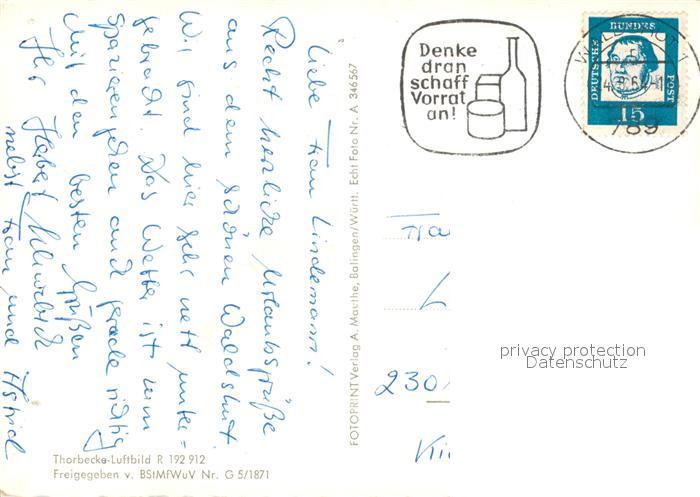 Liebe Frau Lindemann!
Recht herzliche Urlaubsgrüße
aus dem schönen Waldshut.
Wir sind hier sehr nett unter=
gebracht. Das Wetter ist zum
Spazierengehen auch gerade richtig
Mit den besten Grüßen
Ihr Hubert
nebst Frau und Astrid
Thorbecke-Luftbild R 192 912
Freigegeben v. BStMfWuV Nr. G 5/1871
FOTOPRINT Verlag A. Mauthe, Balingen/Württ. Echt Foto Nr. A 346567
Denke
dran
schaff
Vorrat
an!
DEUTSCHE
BUNDES
POST
15
789
Fra
L
230
Kii
privacy protection
Datenschutz